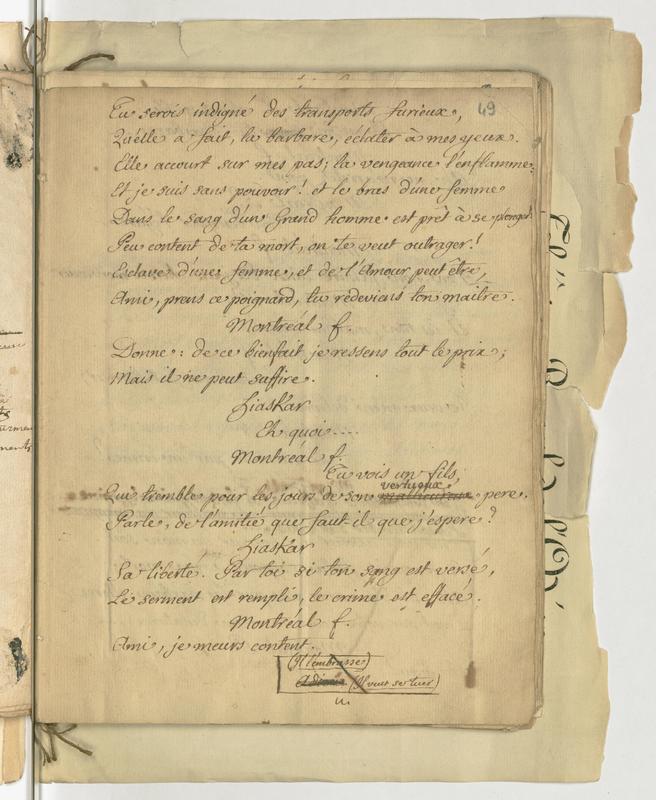 49
Tu serois indigné des transports furieux,
Qu'elle a fait, la Barbare, éclater à mes yeux.
Elle accourt sur mes pas; la vengeance l'enflamme.
Et je suis sans pouvoir! et le bras d'une femme
Dans le sang d'un Grand homme est prêt à se plonger!
Peu content de ta mort, on te veut outrager!
Esclave d'une femme, et de l'Amour peut être,
Ami, prens ce poignard, tu redeviens ton maitre.
Montréal f.
Donne: de ce bienfait je ressens tout le prix;
Mais il ne peut suffire.
Liaskar
Eh quoi....
Montréal f.
Tu vois un fils,
vertueux
Qui tremble pour les jours de son malheureux pere.
Parle, de l'amitié que faut il que j'espere?
Liaskar
Sa liberté. Par toi si ton sang est versé,
Le serment est rempli, le crime est effacé.
Montréal f.
Ami, je meurs content.
(Il l'embrasse)
adieu (Il veut se tuer)